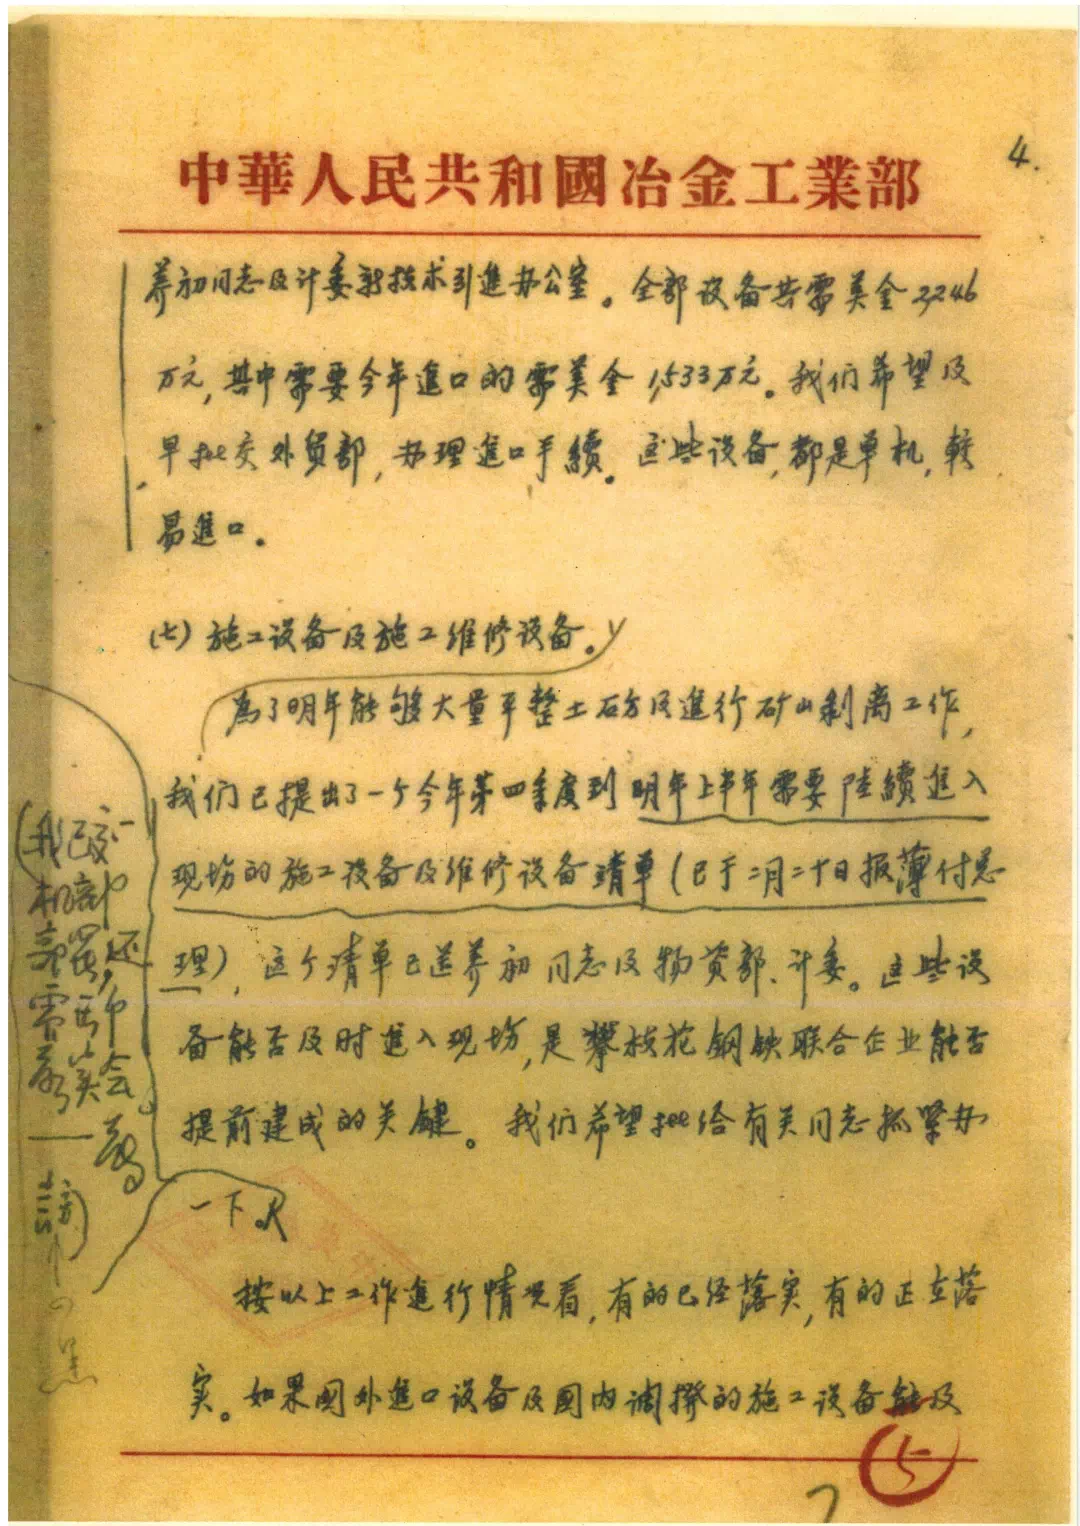 4.
中華人民共和國冶金工業部
养初同志及计委新技术引進办公室。全部设备共需美金2,246
万元,其中需要今年進口的需美金1,533万元。我们希望及
早批交外贸部,办理進口手續。这些设备,都是单机,較
易進口。
(七)施工设备及施工维修设备。
為了明年能够大量平整土石方及進行矿山剥离工作,
我们已提出了一个今年第四季度到明年上半年需要陸續進入
现场的施工设备及维修设备清单(已于二月二十日报薄付总
理),这个清单已送养初同志及物资部、计委。这些设
备能否及时進入现场,是攀枝花钢铁联合企业能否
提前建成的关鍵。我们希望批给有关同志抓紧办
一下。
按以上工作進行情况看,有的已经落实,有的正在落
实。如果國外進口设备及國内调撥的施工设备能及
(我已交一
机部
还
会。
5